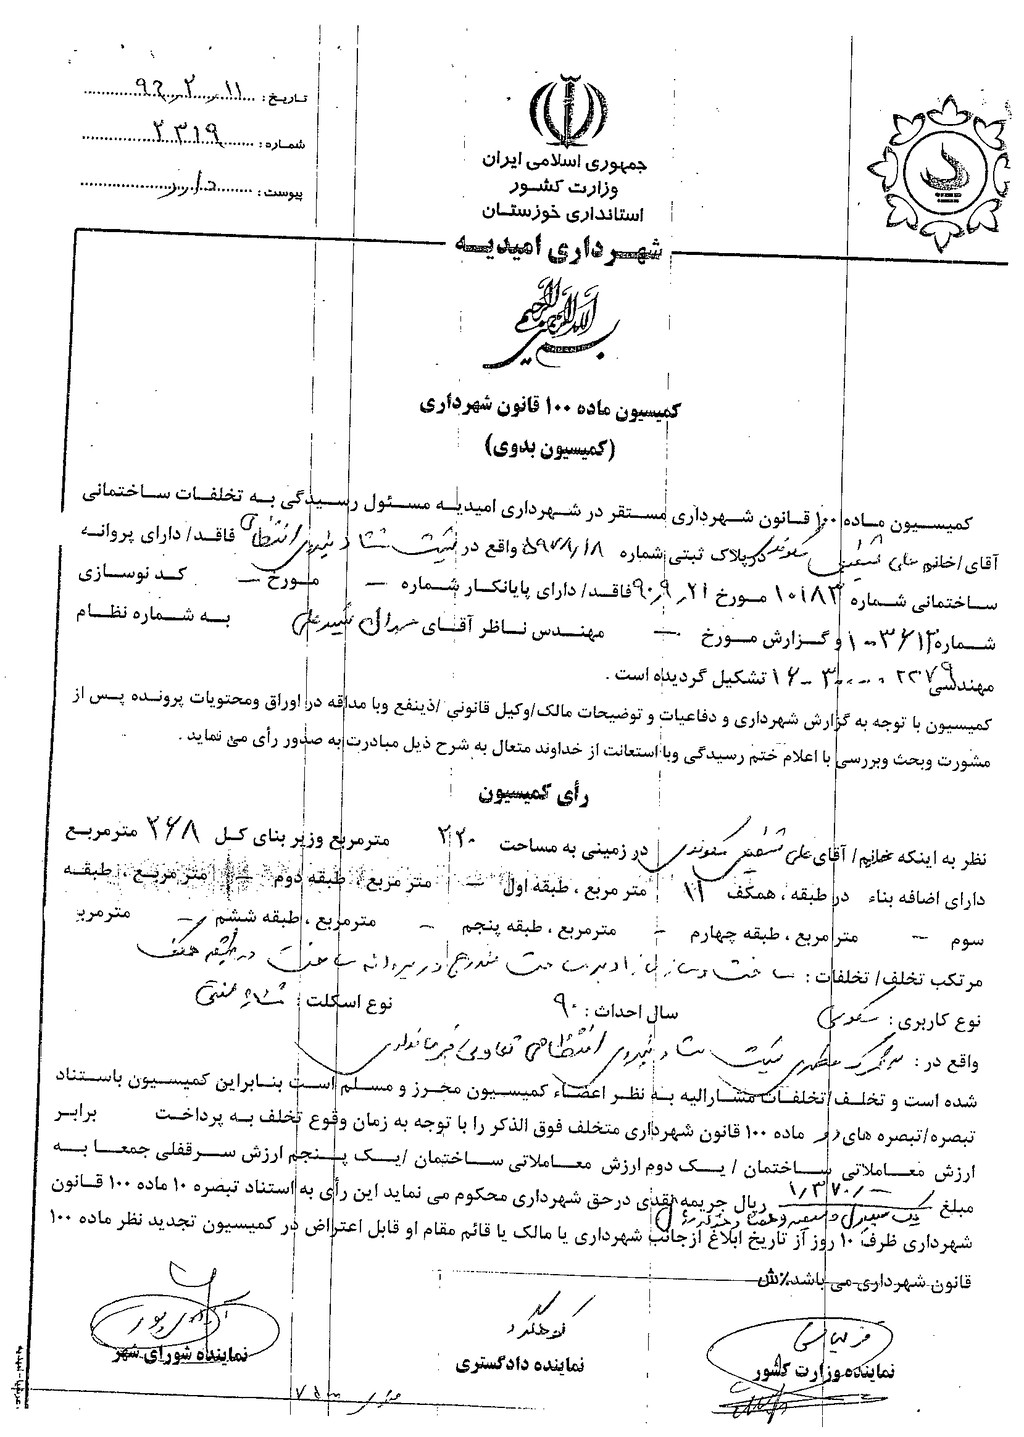 تاریخ: ۹۲٫۲٫۱۱
شماره: ۲۳۱۹
پیوست: دارد
جمهوری اسلامی ایران
وزارت کشور
استانداری خوزستان
شهرداری امیدیه
بسم الله الرحمن الرحیم
کمیسیون ماده ۱۰۰ قانون شهرداری
(کمیسیون بدوی)
کمیسیون ماده ۱۰۰ قانون شهرداری مستقر در شهرداری امیدیه مسئول رسیدگی به تخلفات ساختمانی
آقای/خانم علی در پلاک ثبتی شماره ۵۹۷۸/۱۸ واقع در پشت ستاد نیروی انتظامی فاقد/ دارای پروانه
ساختمانی شماره ۱۰۱۸۳ مورخ ۹۰٫۹٫۲۱ فاقد/ دارای پایانکار شماره – مورخ – کد نوسازی
شماره ۱۰۰۳۶۱۲ و گزارش مورخ – مهندس ناظر آقای به شماره نظام
مهندسی ۱۶-۳۰-۰۰۲۲۷۹ تشکیل گردیده است .
کمیسیون با توجه به گزارش شهرداری و دفاعیات و توضیحات مالک/وکیل قانونی /ذینفع وبا مداقه در اوراق ومحتویات پرونده پس از
مشورت وبحث وبررسی با اعلام ختم رسیدگی وبا استعانت از خداوند متعال به شرح ذیل مبادرت به صدور رأی می نماید .
رأی کمیسیون
نظر به اینکه خانم/ آقای علی در زمینی به مساحت ۲۲۰ مترمربع وزیر بنای کل ۲۶۸ مترمربع
دارای اضافه بناء در طبقه ، همکف ۱۱ متر مربع ، طبقه اول – متر مربع ، طبقه دوم – متر مربع ، طبقه
سوم – متر مربع ، طبقه چهارم – مترمربع ، طبقه پنجم – مترمربع ، طبقه ششم – مترمربع
مرتکب تخلف/ تخلفات : ساخت و ساز مازاد بر مساحت مندرج در پروانه ساخت در طبقه همکف
نوع کاربری : مسکونی سال احداث : ۹۰ نوع اسکلت :
واقع در : شهرک مطهری پشت ستاد نیروی انتظامی تعاونی فرمانداری
شده است و تخلف/تخلفات مشارالیه به نظر اعضاء کمیسیون محرز و مسلم است بنابراین کمیسیون باستناد
تبصره/تبصره های دو ماده ۱۰۰ قانون شهرداری متخلف فوق الذکر را با توجه به زمان وقوع تخلف به پرداخت برابر
ارزش معاملاتی ساختمان / یک دوم ارزش معاملاتی ساختمان /یک پنجم ارزش سرقفلی جمعا به
مبلغ ۱/۳۷۰/۰۰۰ ریال جریمه نقدی در حق شهرداری محکوم می نماید این رأی به استناد تبصره ۱۰ ماده ۱۰۰ قانون
یک میلیون و سیصد و هفتاد هزار ریال
شهرداری ظرف ۱۰ روز از تاریخ ابلاغ ازجانب شهرداری یا مالک یا قائم مقام او قابل اعتراض در کمیسیون تجدید نظر ماده ۱۰۰
قانون شهرداری می باشد٪ش
نماینده وزارت کشور
نماینده دادگستری
نماینده شورای شهر